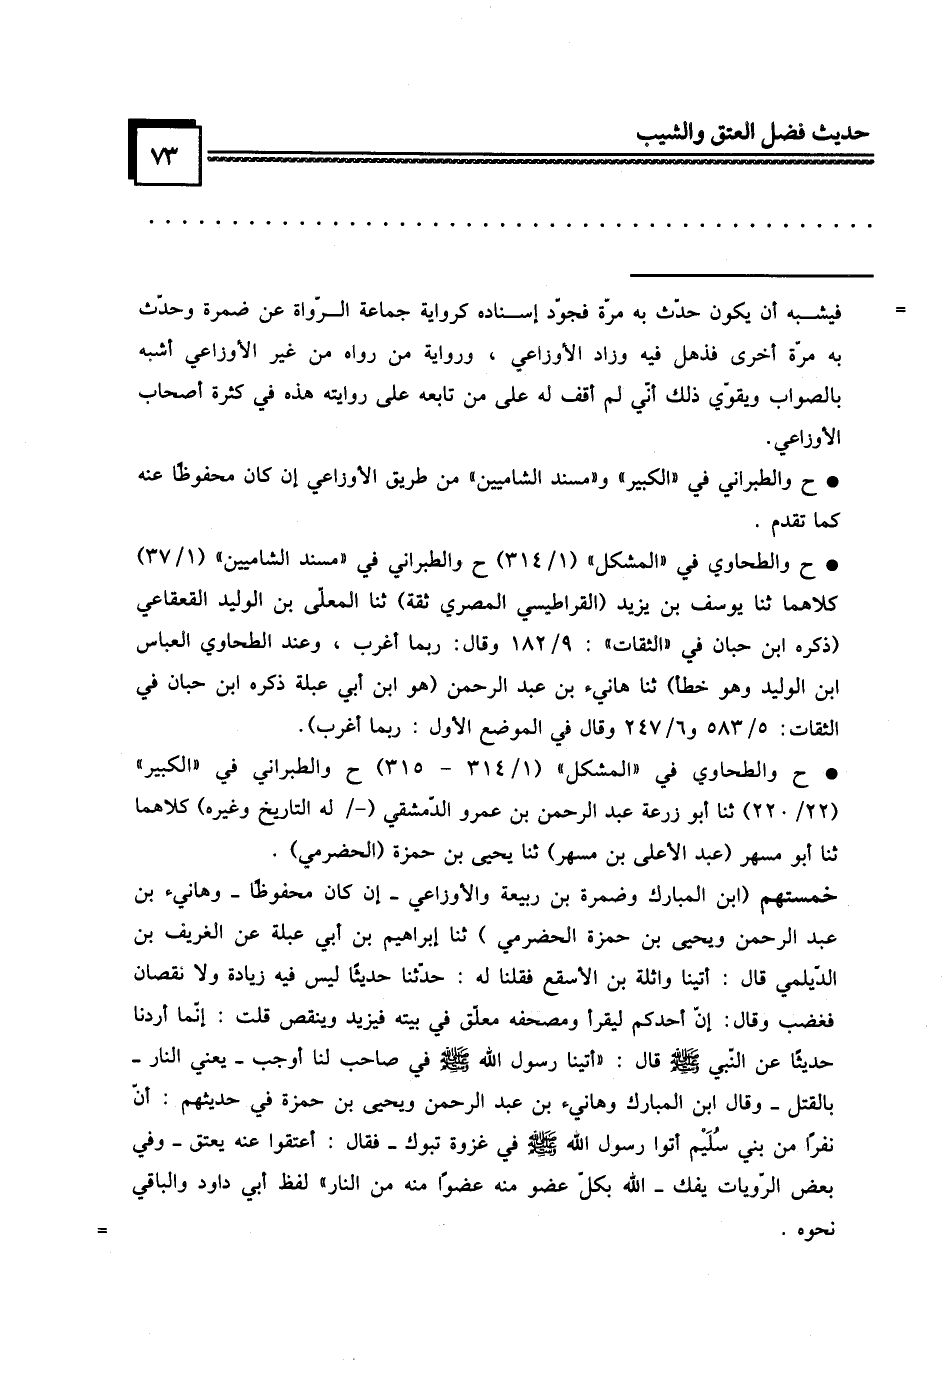 حديث فضل العتق والشيب
٧٣
. . . . . . . . . . . . . . . . . . . . . . . . . . . . . . . . . . . . . . . . . . . .
= فيشبه أن يكون حدّث به مرّة فجوّد إسناده كرواية جماعة الرّواة عن ضمرة وحدّث
به مرّة أخرى فذهل فيه وزاد الأوزاعي ، ورواية من رواه من غير الأوزاعي أشبه
بالصواب ويقوّي ذلك أنّي لم أقف له على من تابعه على روايته هذه في كثرة أصحاب
الأوزاعي.
● ح والطبراني في «الكبير» و«مسند الشاميين» من طريق الأوزاعي إن كان محفوظًا عنه
كما تقدم .
● ح والطحاوي في «المشكل» (٣١٤/١) ح والطبراني في «مسند الشاميين» (٣٧/١)
كلاهما ثنا يوسف بن يزيد (القراطيسي المصري ثقة) ثنا المعلّى بن الوليد القعقاعي
(ذكره ابن حبان في «الثقات» : ١٨٢/٩ وقال: ربما أغرب ، وعند الطحاوي العباس
ابن الوليد وهو خطأ) ثنا هانيء بن عبد الرحمن (هو ابن أبي عبلة ذكره ابن حبان في
الثقات: ٥٨٣/٥ و٢٤٧/٦ وقال في الموضع الأول : ربما أغرب).
● ح والطحاوي في «المشكل» (٣١٤/١ - ٣١٥) ح والطبراني في «الكبير»
(٢٢٠/٢٢) ثنا أبو زرعة عبد الرحمن بن عمرو الدّمشقي (-/ له التاريخ وغيره) كلاهما
ثنا أبو مسهر (عبد الأعلى بن مسهر) ثنا يحيى بن حمزة (الحضرمي) .
خمستهم (ابن المبارك وضمرة بن ربيعة والأوزاعي ـ إن كان محفوظًا ـ وهانيء بن
عبد الرحمن ويحيى بن حمزة الحضرمي ) ثنا إبراهيم بن أبي عبلة عن الغريف بن
الدّيلمي قال : أتينا واثلة بن الأسقع فقلنا له : حدّثنا حديثًا ليس فيه زيادة ولا نقصان
فغضب وقال: إنّ أحدكم ليقرأ ومصحفه معلّق في بيته فيزيد وينقص قلت : إنّما أردنا
حديثًا عن النّبي ﷺ قال : «أتينا رسول الله ﷺ في صاحب لنا أوجب ـ يعني النار ـ
بالقتل ـ وقال ابن المبارك وهانيء بن عبد الرحمن ويحيى بن حمزة في حديثهم : أنّ
نفرًا من بني سُلَيْم أتوا رسول الله ﷺ في غزوة تبوك ـ فقال : أعتقوا عنه يعتق ـ وفي
بعض الرّويات يفك ـ الله بكلّ عضو منه عضوًا منه من النار» لفظ أبي داود والباقي
نحوه . =